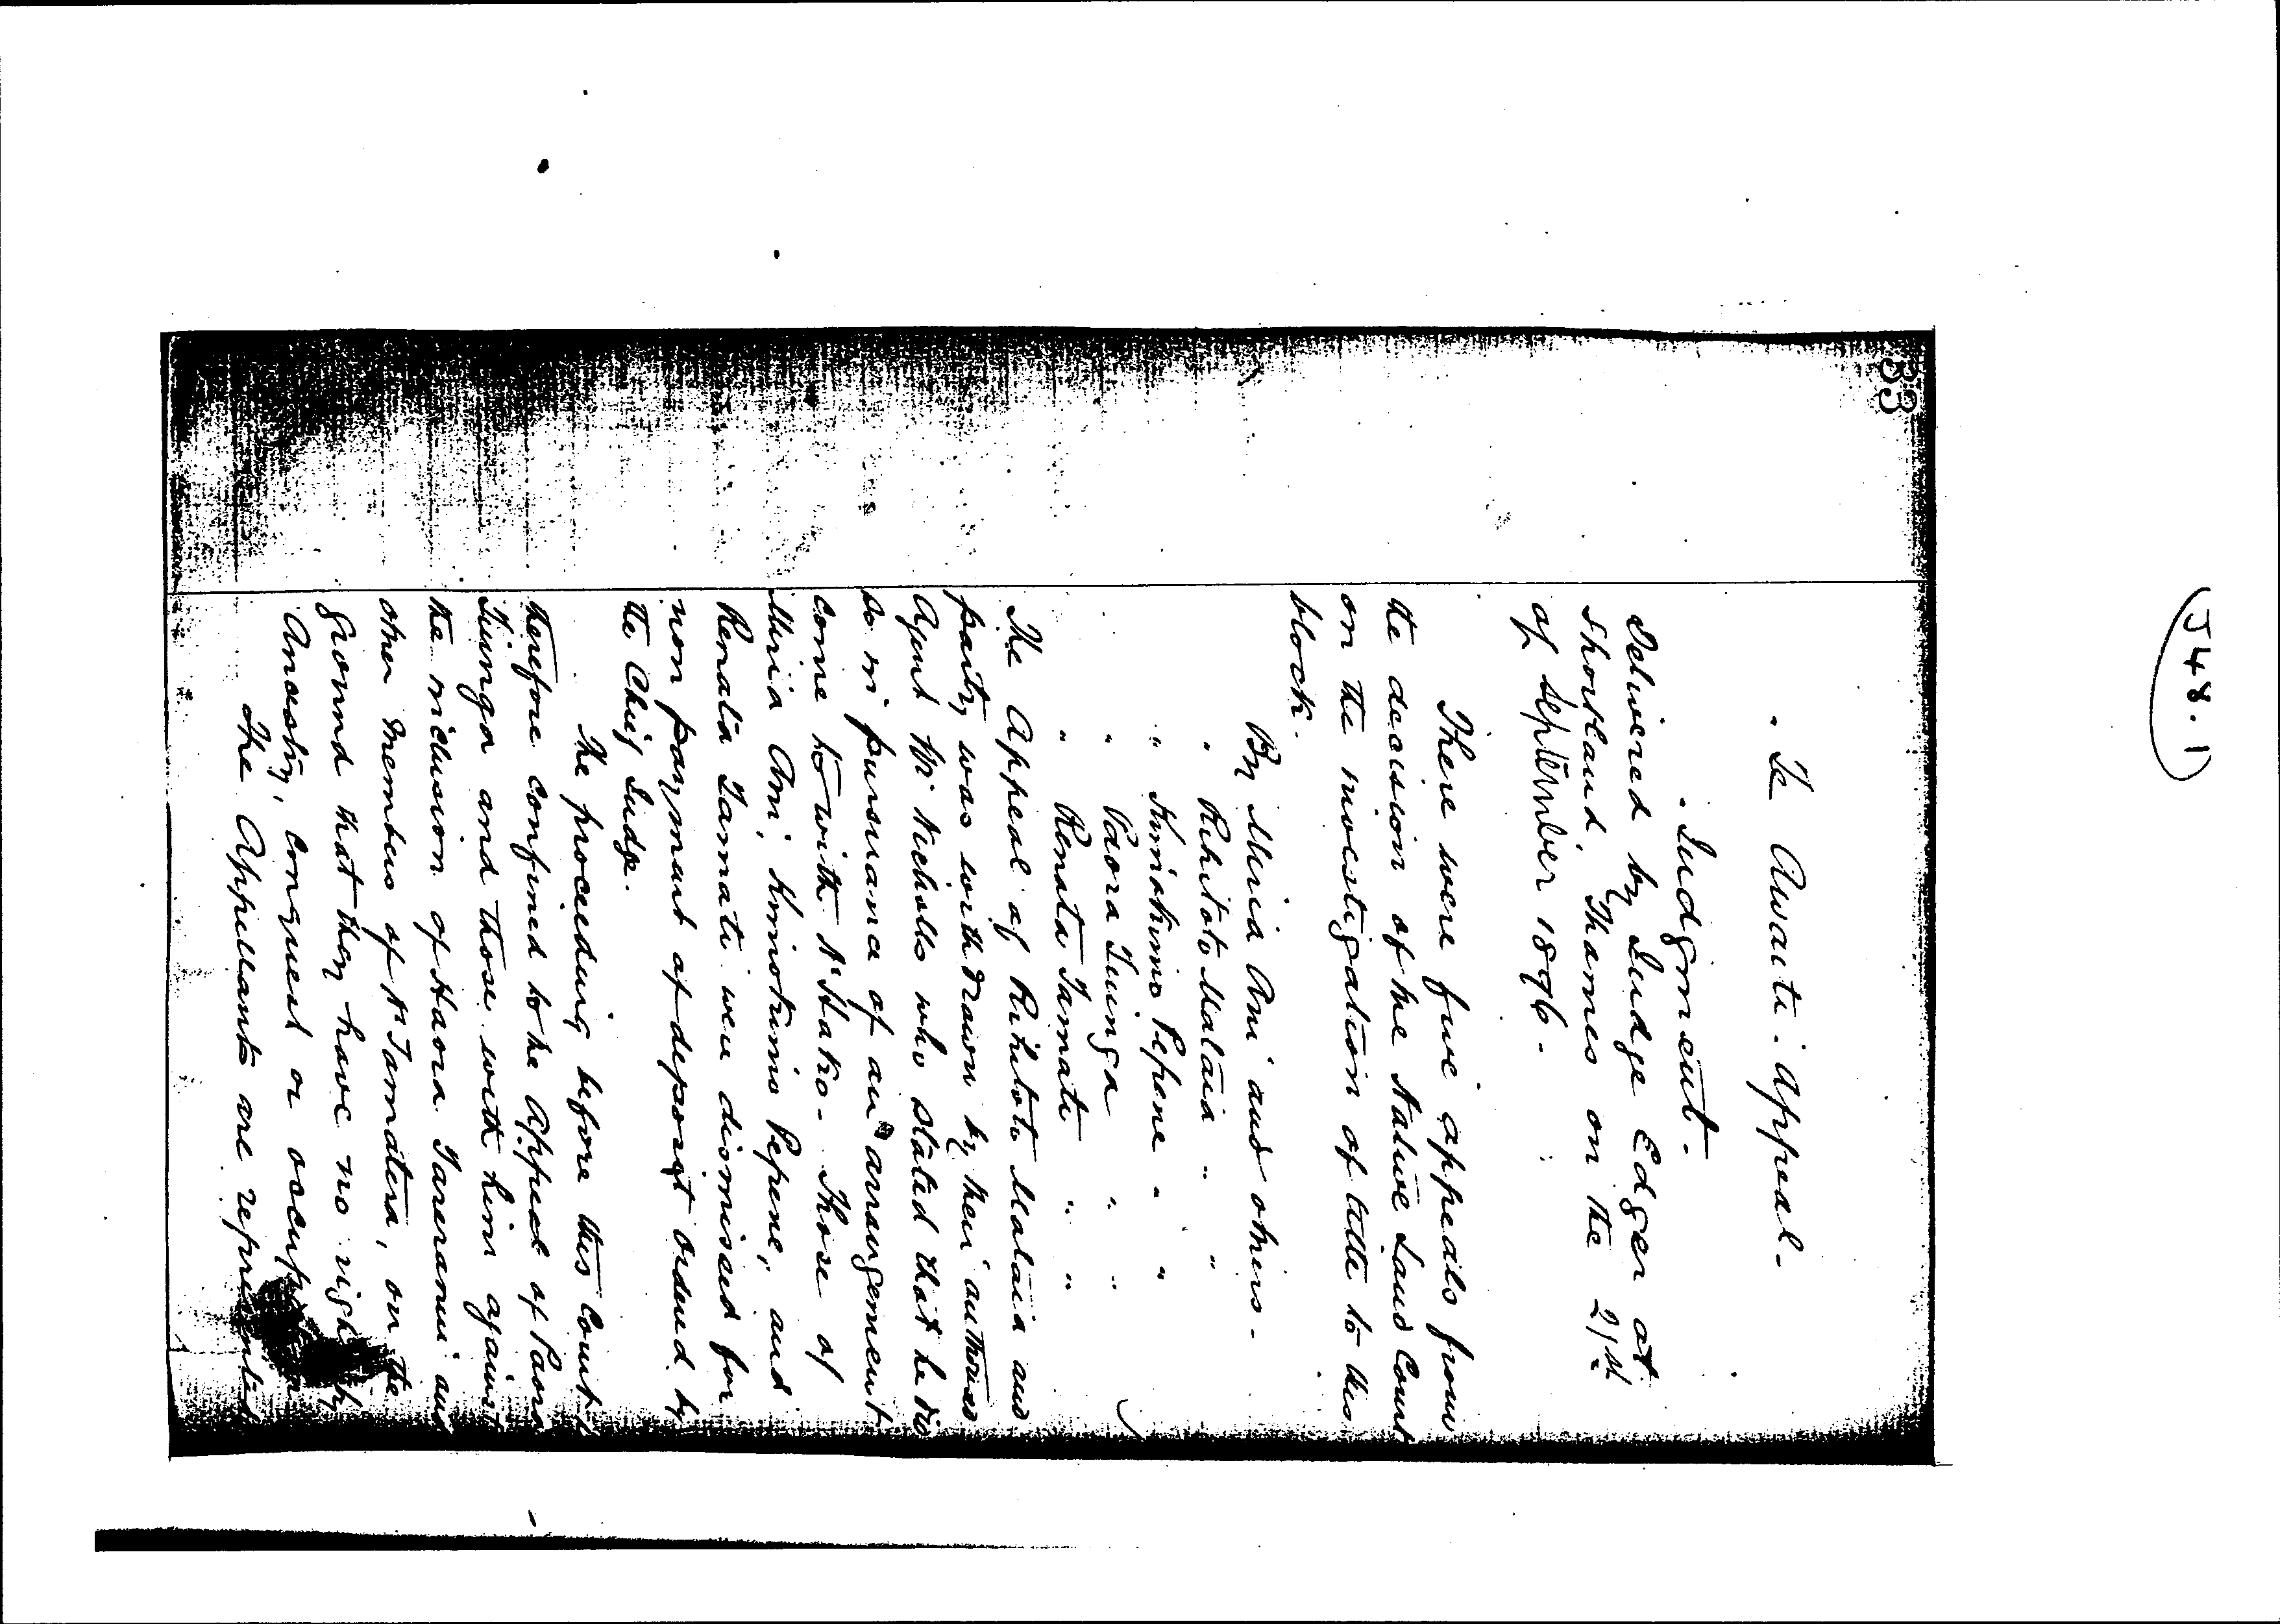 J48.1
33
Te Awaiti. Appeal-
Judgment.
Delivered by Judge Edger at
Shortland Thames on the 21st
of September 1896.
There were five appeals from
the decision of the Native Land Court
on the investigation of title to this
block.
By Miria Ani and others.
" Rihitoto Mataia " "
" Kerepene " "
" Paora Tiunga " "
" Renata Tamati " "
The Appeal of Rihitoto Mataia and
party was withdrawn by their authorised
Agent Mr Nicholls who stated that he did
so in pursuance of an arrangement
come to with N'Hako. Those of
Miria Ani, Pepene, and
Renata Tamati were dismissed for
non payment of deposit ordered by
the Chief Judge.
The proceeding before this Court is
therefore confined to the Appeal of Paora
Tiunga and those with him against
the inclusion of Haora Tareranui and
other members of N'Tamatera, on the
ground that they have no right by
Ancestry, conquest or
The Appellants are represented